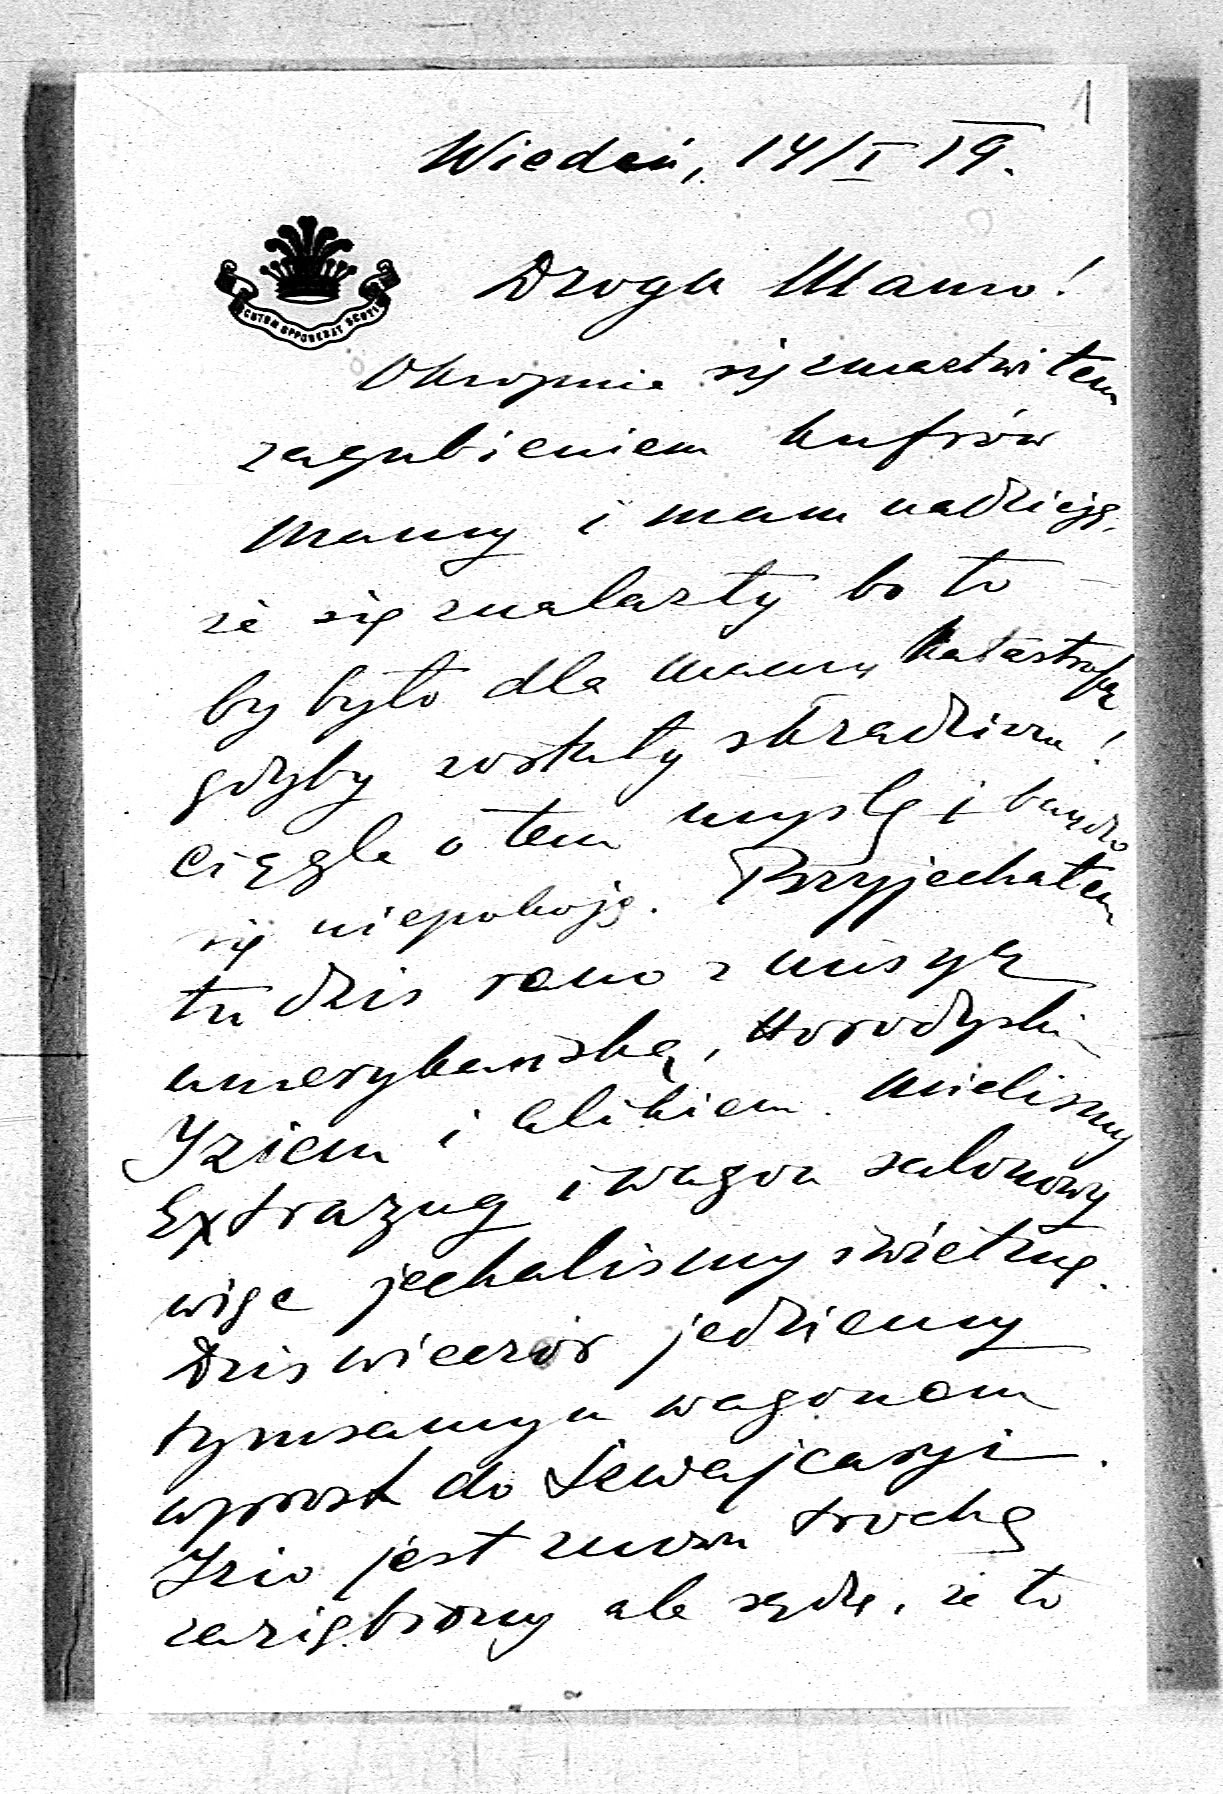 1
Wiedeń, 14/I 19.
Droga Mamo!
SCUTUM OPPONEBAT SCUTIS
Okropnie się zmartwiłem
zagubieniem kufrów
Mamy i mam nadzieję,
że się znalazły bo to
by było dla Mamy katastrofą
gdyby zostały skradzione!
ciągle o tem myślę i bardzo
się niepokoję. Przyjechałem
tu dziś rano z misyą
amerykańską, Horodyskim
Iziem i Alikiem. Mieliśmy
Extrazug i wagon salonowy
więc jechaliśmy świetnie.
Dziś wieczór jedziemy
tymsamym wagonem
wprost do Szwajcaryi.
Izio jest znowu trochę
zaziębiony ale sądzę, że to